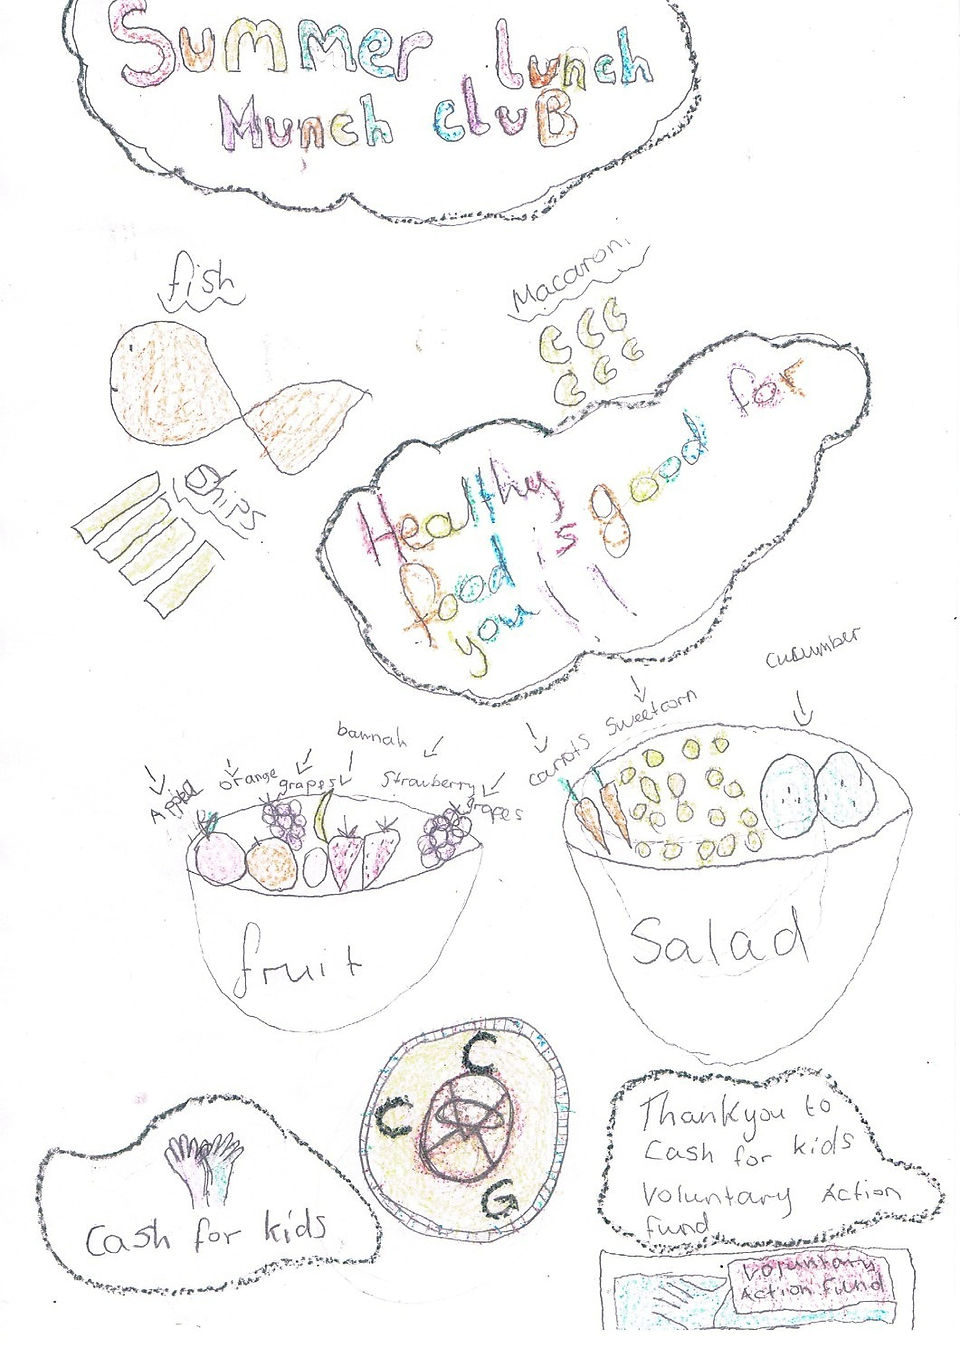 Summer Lunch
Munch cluB
fish
Macaroni
chips
Healthy
food is good for
you !
Appel
orange
grapes
bannah
Strawberry
grapes
carrots
Sweetcorn
cucumber
fruit
Salad
C
C
G
Cash for kids
Thankyou to
Cash for kids
Voluntary Action
fund
Voluntary
Action Fund